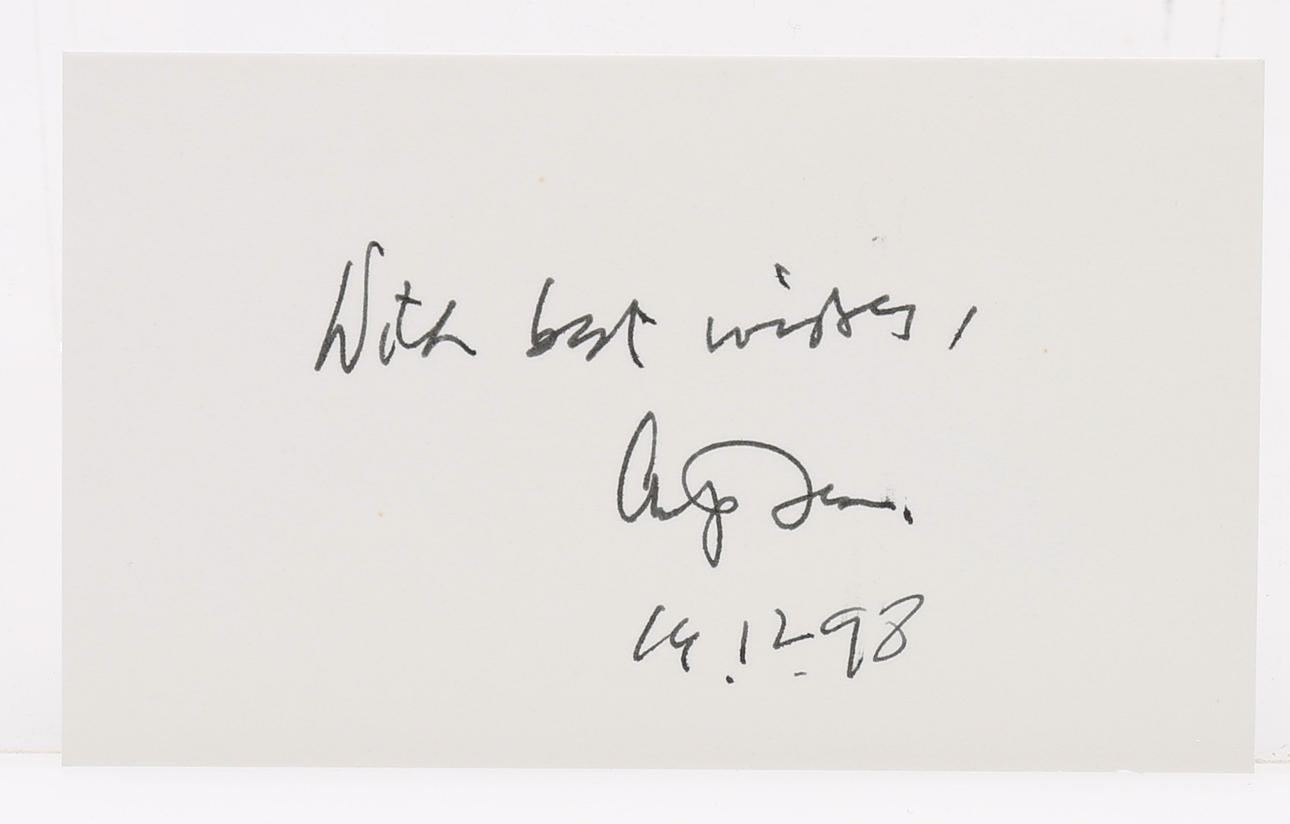 With best wishes,
14.12.98